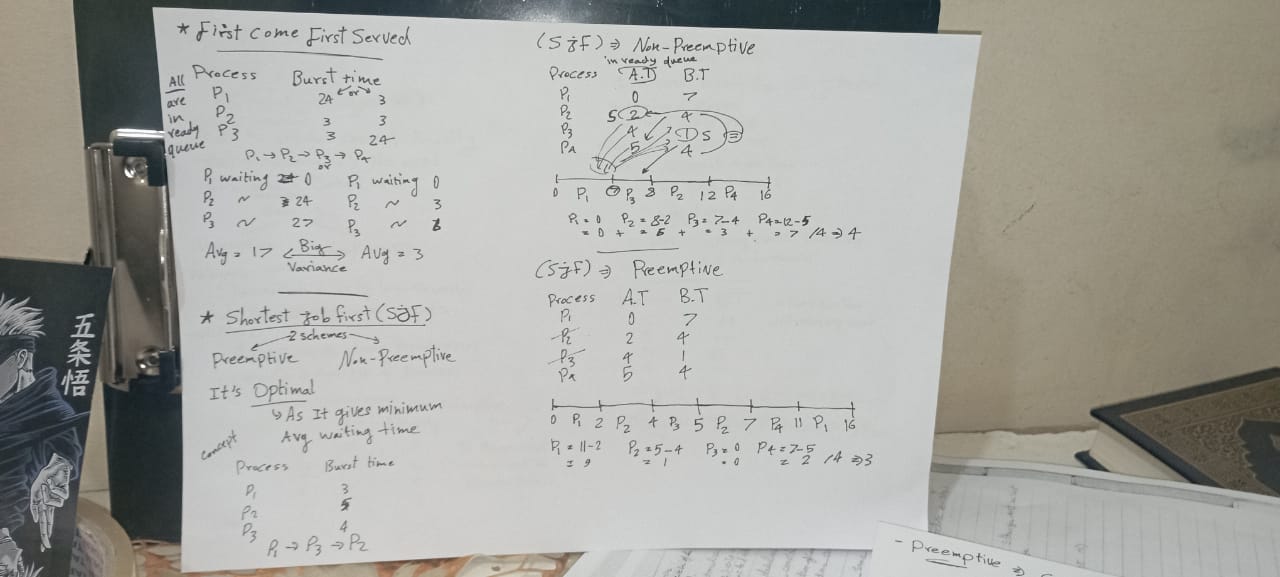 * First Come First Served
All are in ready queue
Process Burst time
P1 24 or 3
P2 3 3
P3 3 24
P1 → P2 → P3 → P4
or
P1 waiting 0 P1 waiting 0
P2 ~ 24 P2 ~ 3
P3 ~ 27 P3 ~ 6
Avg = 17 Big Variance Avg = 3
* Shortest job first (SJF)
2 schemes
Preemptive Non-Preemptive
It's Optimal
↳ As It gives minimum
Avg waiting time
concept
Process Burst time
P1 3
P2 5
P3 4
P1 → P3 → P2
(SJF) ⇒ Non-Preemptive
in ready queue
Process A.T B.T
P1 0 7
P2 5 2 4
P3 4 1 5
P4 5 4
0 P1 7 P3 8 P2 12 P4 16
P1 = 0 P2 = 8-2 P3 = 7-4 P4 = 12-5
= 0 + = 6 + = 3 + = 7 /4 ⇒ 4
(SJF) ⇒ Preemptive
Process A.T B.T
P1 0 7
P2 2 4
P3 4 1
P4 5 4
0 P1 2 P2 4 P3 5 P2 7 P4 11 P1 16
P1 = 11-2 P2 = 5-4 P3 = 0 P4 = 7-5
= 9 = 1 = 0 = 2 /4 ⇒ 3
五条悟
- Preemptive ⇒